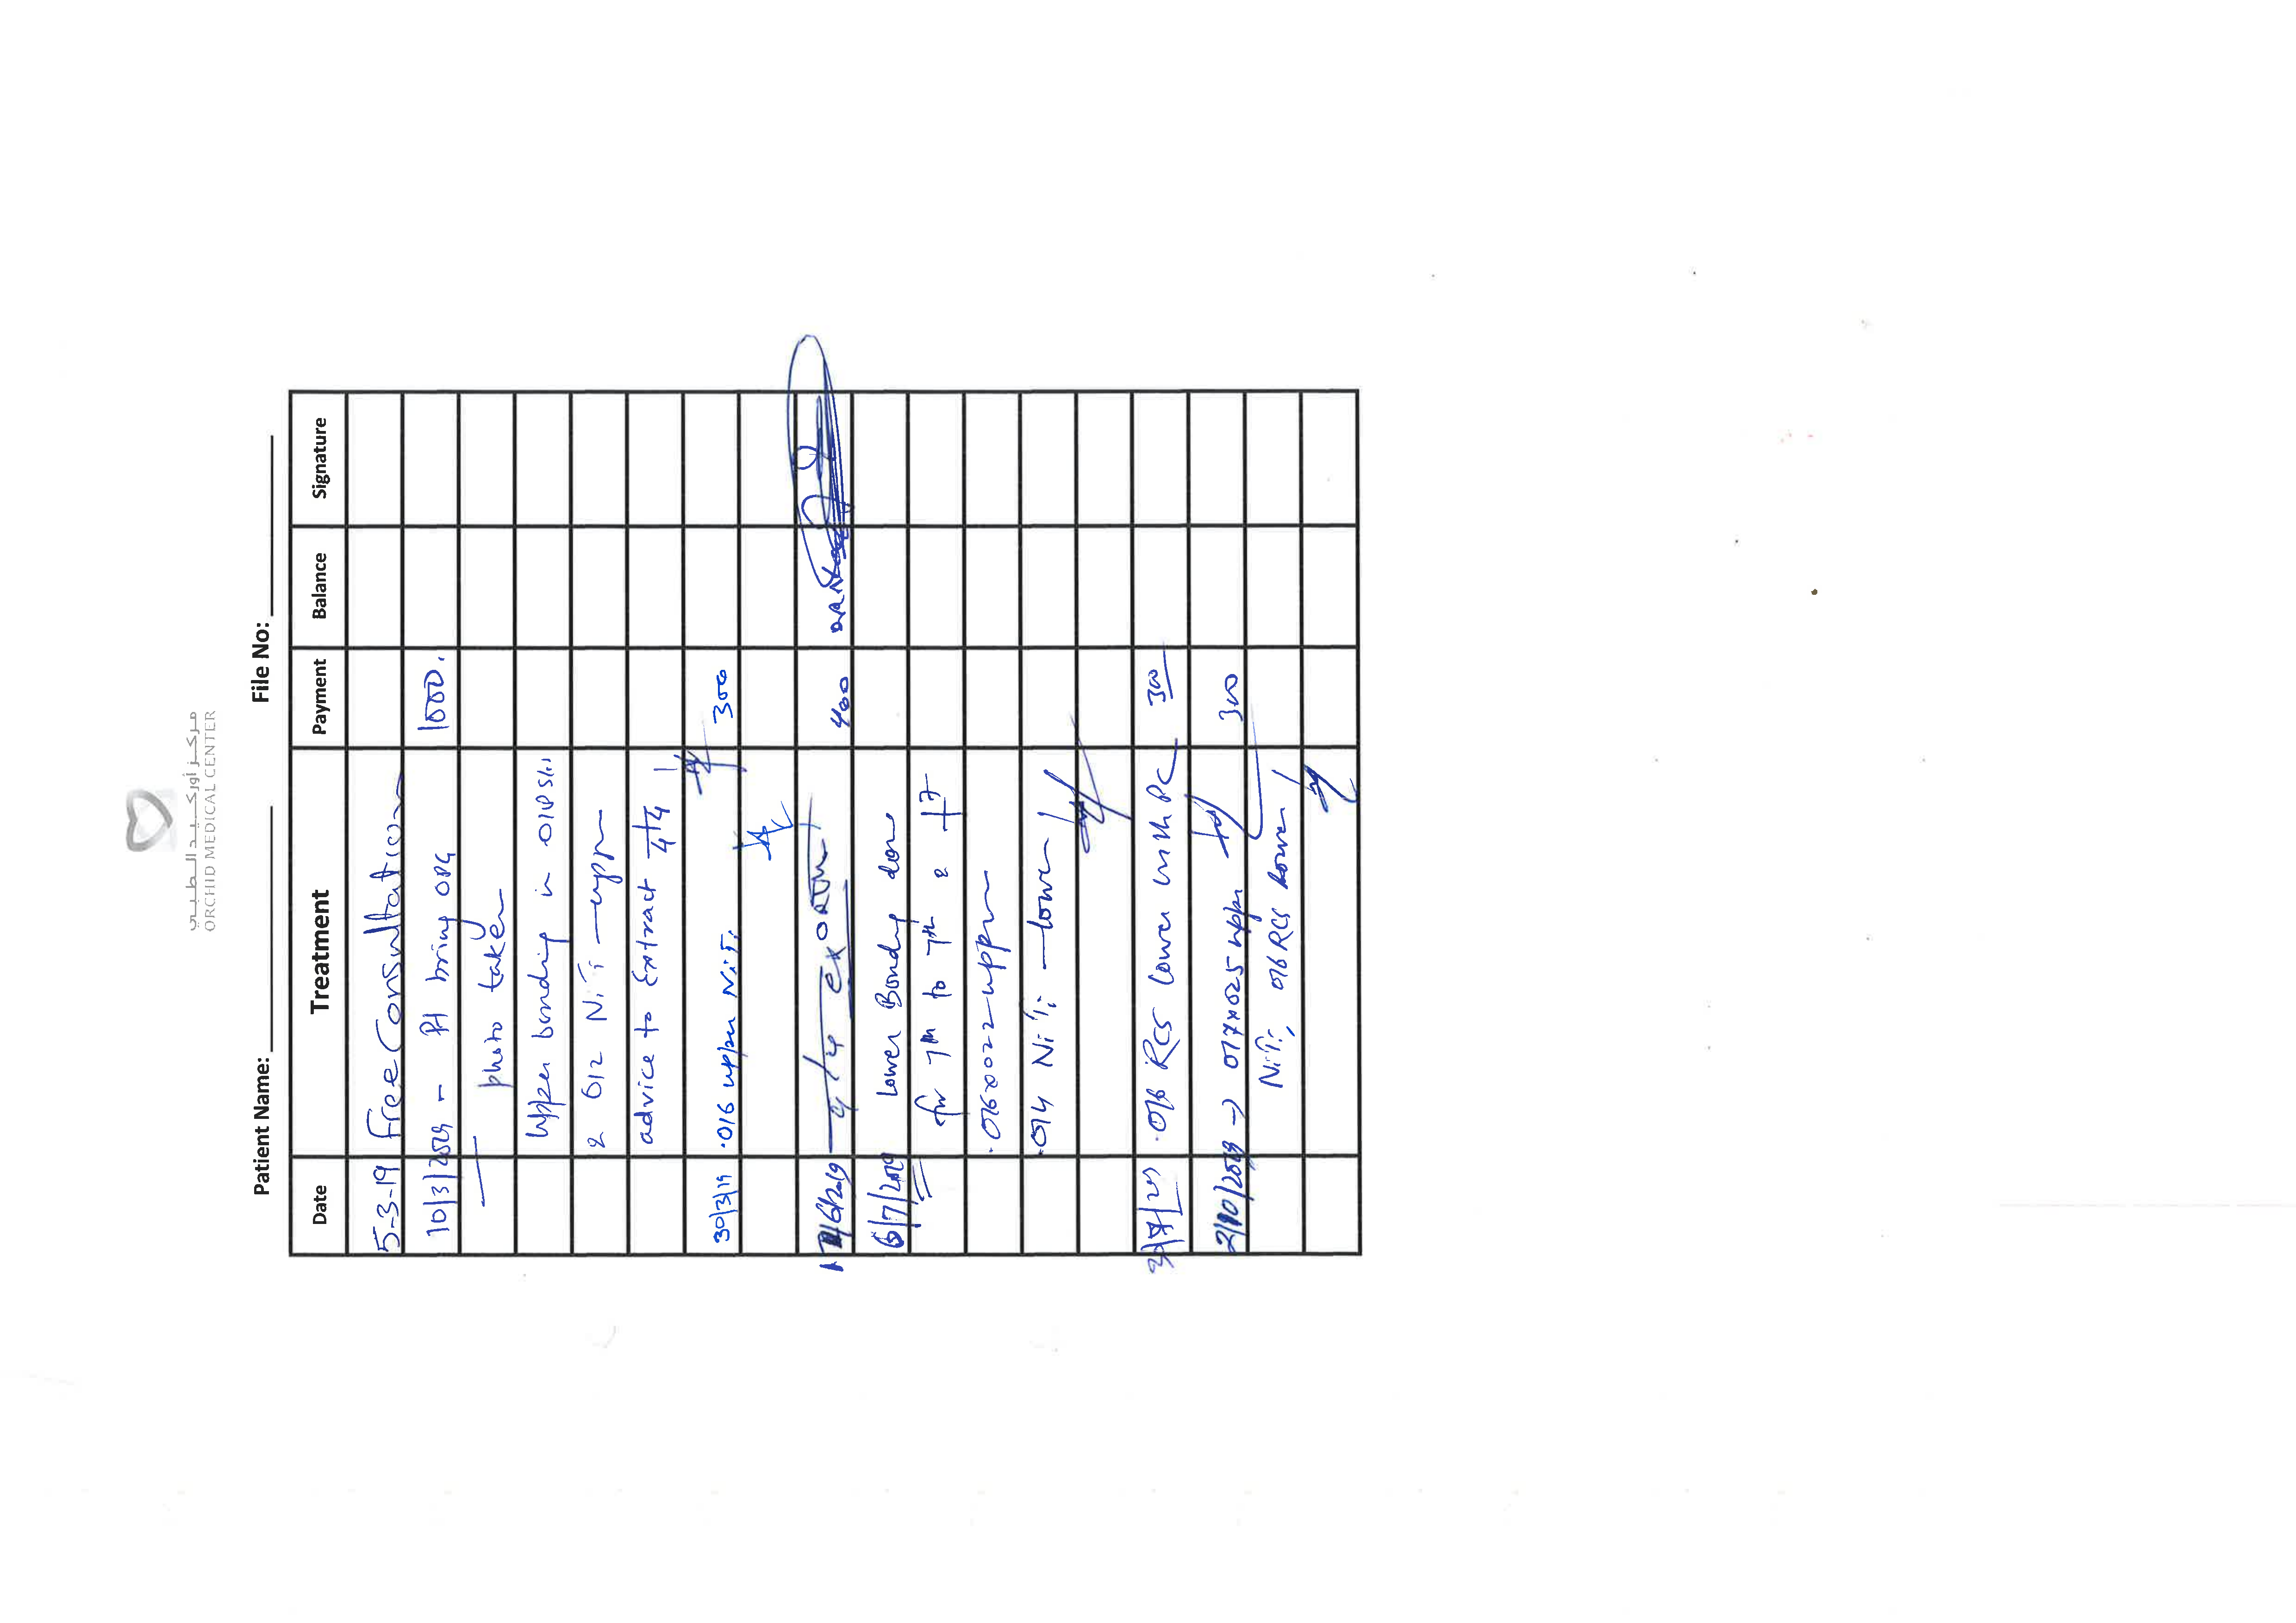 مركز أوركيد الطبي
ORCHID MEDICAL CENTER
Patient Name: File No:
Date Treatment Payment Balance Signature
5-3-19 Free Consultation
10/3/2019 - Pt bring OPG 1000.
photo taken
Upper bonding in 018 Sli
2 012 NiTi — upper
advice to Extract 4/4
30/3/19 .016 upper NiTi 300
/6/2019 4/4 400
6/7/2019 Lower Bonding done
for 7th to 7th 2 7
.016x022 — upper
.014 NiTi — lower
.016 RCS lower with PC 300
2/10/2019 → 017x025 upper 300
NiTi, 016 RCS lower